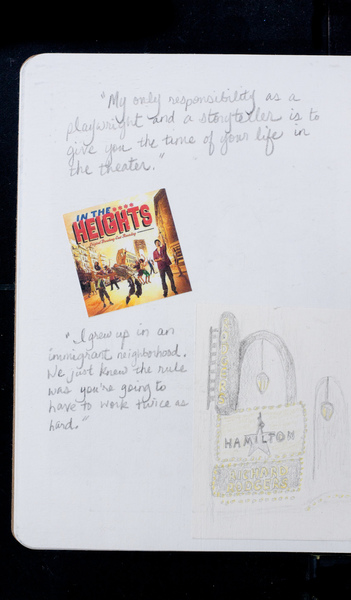 "My only responsibility as a
playwright and a storyteller is to
give you the time of your life in
the theater."
IN THE
HEIGHTS
Original Broadway Cast Recording
"I grew up in an
immigrant neighborhood.
We just knew the rule
was you're going to
have to work twice as
hard."
HAMILTON
RICHARD
RODGERS